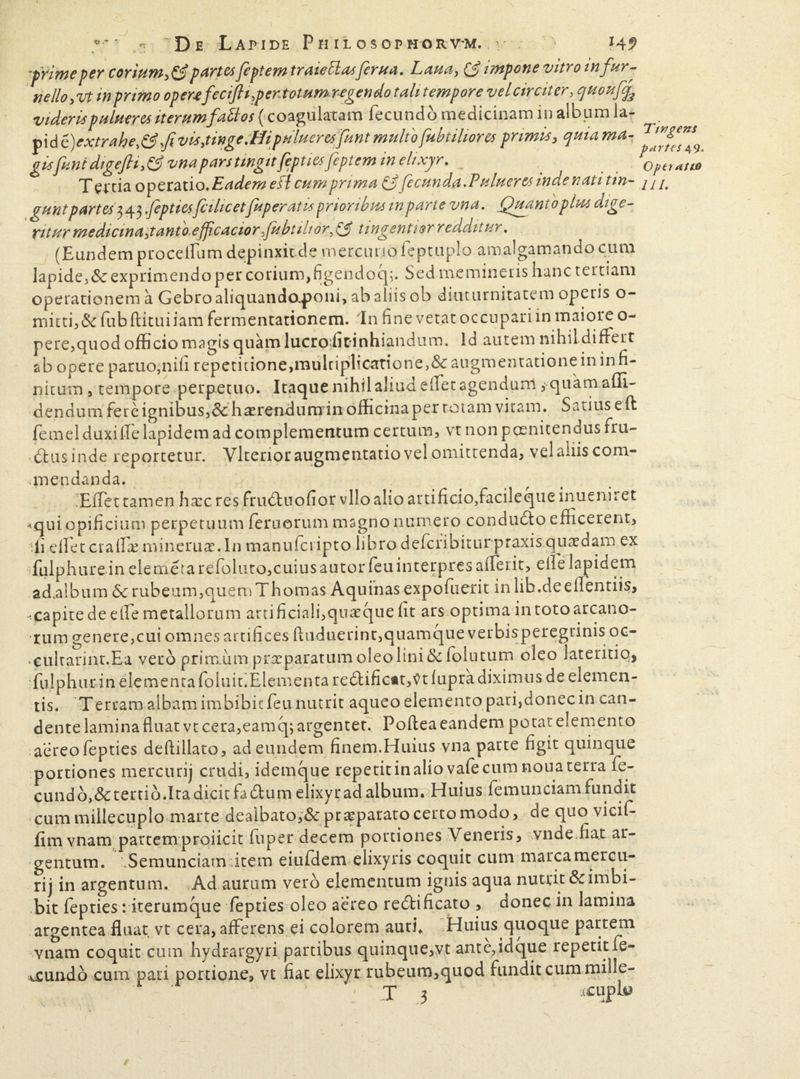 DE LAPIDE PHILOSOPHORVM. 149
prime per corium, & partes septem traiectas serua. Laua, & impone vitro in fur-
nello, vt in primo opere fecisti, per totum regendo tali tempore vel circiter, quousq;
videris pulueres iterum factos (coagulatam secundò medicinam in album la-
pidē) extrahe, & si vis, tinge. Hi pulueres sunt multo subtiliores primis, quia ma-
gis sunt digesti, & vna pars tingit septies septem in elixyr.
Tingens
partes 49.
Tertia operatio. Eadem est cum prima & secunda. Pulueres inde nati tin-
Operatio
III.
gunt partes 343. septies scilicet superatis prioribus in parte vna. Quanto plus dige-
ritur medicina, tanto efficacior, subtilior, & tingentior redditur.
(Eundem processum depinxit de mercurio septuplo amalgamando cum
lapide, & exprimendo per corium, figendoq;. Sed memineris hanc tertiam
operationem à Gebro aliquando poni, ab aliis ob diuturnitatem operis o-
mitti, & substitui iam fermentationem. In fine vetat occupari in maiore o-
pere, quod officio magis quàm lucro sit inhiandum. Id autem nihil differt
ab opere paruo, nisi repetitione, multiplicatione, & augmentatione in infi-
nitum, tempore perpetuo. Itaque nihil aliud esset agendum, quàm assi-
dendum ferè ignibus, & hærendum in officina per totam vitam. Satius est
semel duxisse lapidem ad complementum certum, vt non pœnitendus fru-
ctus inde reportetur. Vlterior augmentatio vel omittenda, vel aliis com-
mendanda.
Esset tamen hæc res fructuosior vllo alio artificio, facileque inueniret
qui opificium perpetuum seruorum magno numero conducto efficerent,
si esset crassæ mineruæ. In manuscripto libro describitur praxis quædam ex
sulphure in elemēta resoluto, cuius autor seu interpres asserit, esse lapidem
ad album & rubeum, quem Thomas Aquinas exposuerit in lib. de essentiis,
capite de esse metallorum artificiali, quæque sit ars optima in toto arcano-
rum genere, cui omnes artifices studuerint, quamque verbis peregrinis oc-
cultarint. Ea verò primùm præparatum oleo lini & solutum oleo lateritio,
sulphur in elementa soluit. Elementa rectificat, vt supra diximus de elemen-
tis. Terram albam imbibit seu nutrit aqueo elemento pari, donec in can-
dente lamina fluat vt cera, eamq; argentet. Postea eandem potat elemento
aëreo septies destillato, ad eundem finem. Huius vna parte figit quinque
portiones mercurij crudi, idemque repetit in alio vase cum noua terra se-
cundò, & tertiò. Ita dicit factum elixyr ad album. Huius semunciam fundit
cum millecuplo marte dealbato, & præparato certo modo, de quo vicis-
sim vnam partem proiicit super decem portiones Veneris, vnde fiat ar-
gentum. Semunciam item eiusdem elixyris coquit cum marca mercu-
rij in argentum. Ad aurum verò elementum ignis aqua nutrit & imbi-
bit septies: iterumque septies oleo aëreo rectificato, donec in lamina
argentea fluat vt cera, afferens ei colorem auri. Huius quoque partem
vnam coquit cum hydrargyri partibus quinque, vt antè, idque repetit se-
cundò cum pari portione, vt fiat elixyr rubeum, quod fundit cum mille-
T 3 cuplo